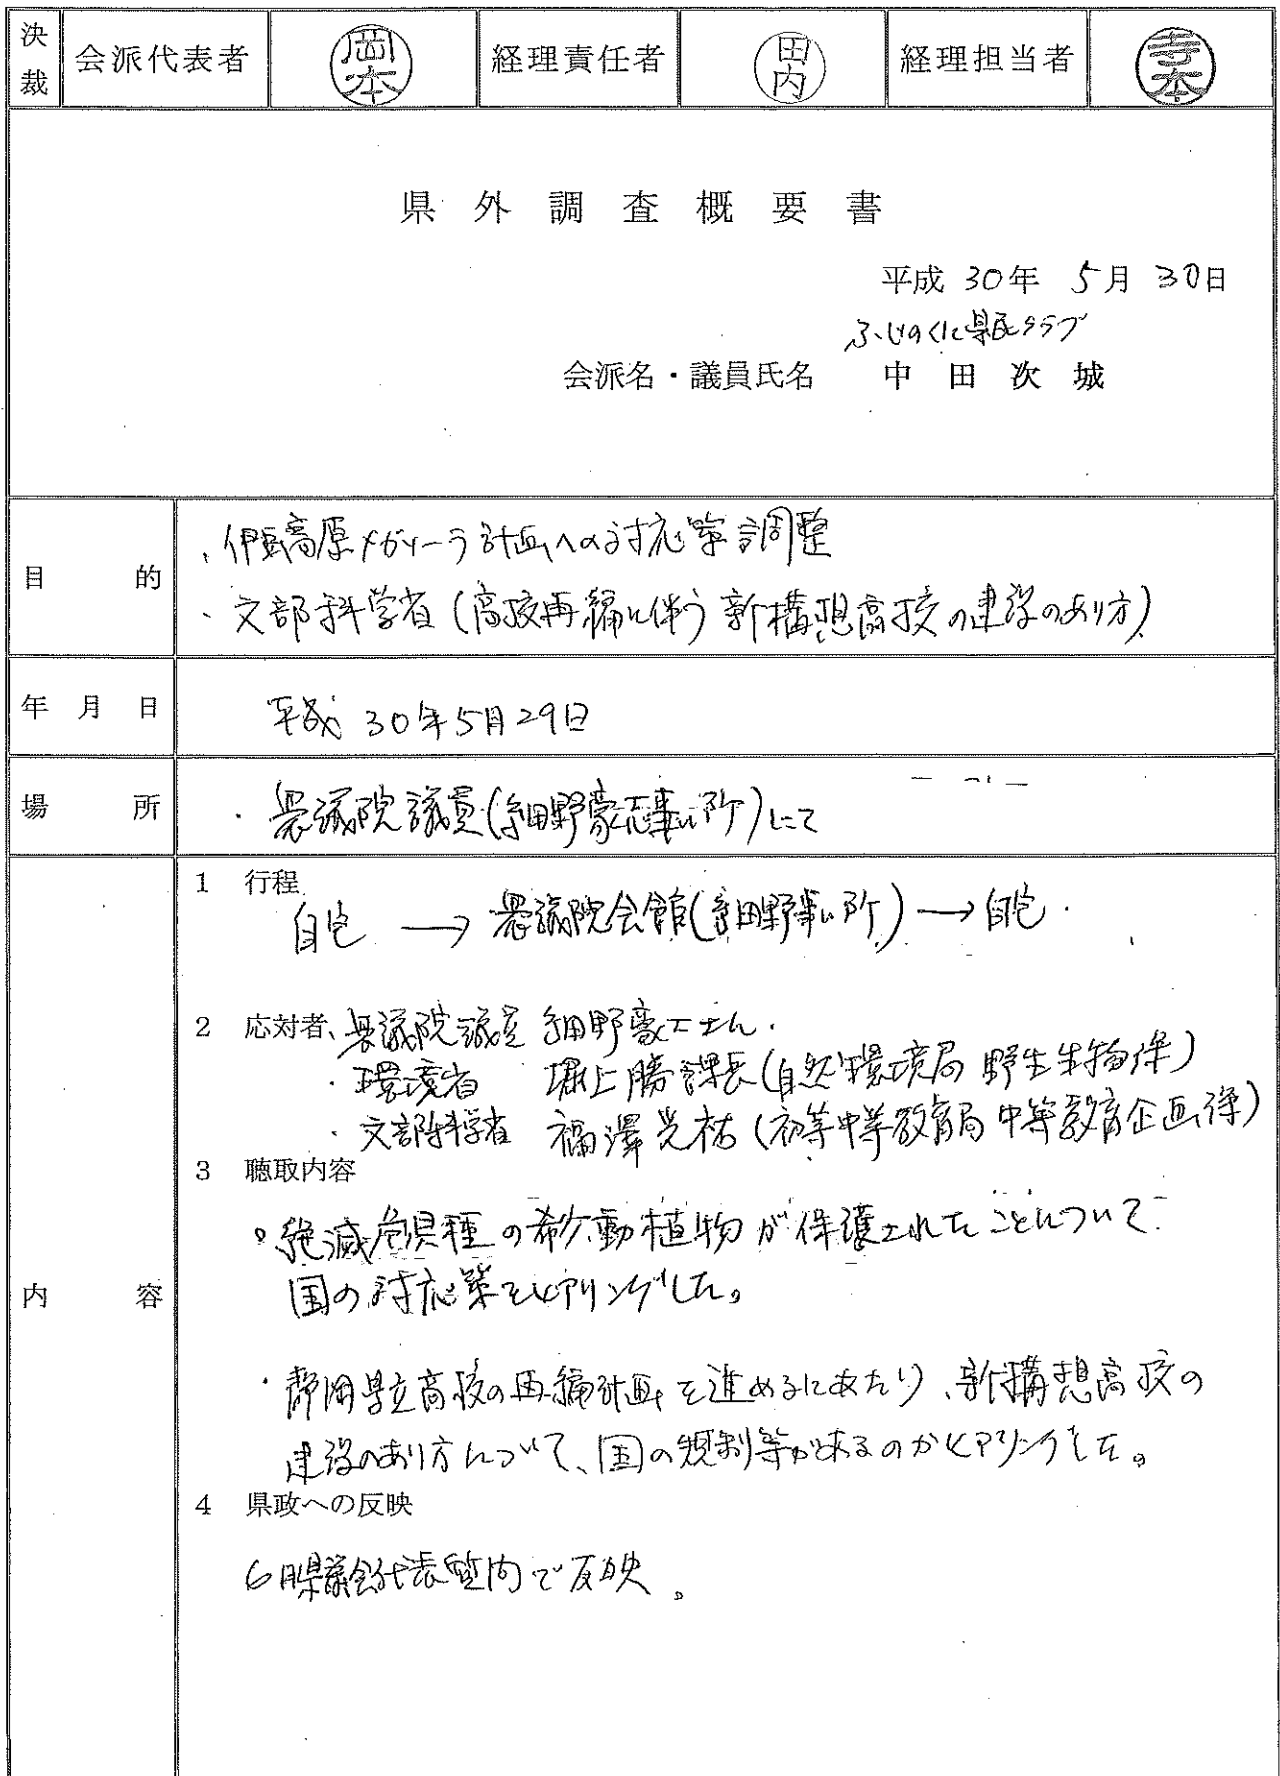 決裁 会派代表者 岡本 経理責任者 田内 経理担当者 寺本
県外調査概要書
平成 30年 5月 30日
ふじのくに県民クラブ
会派名・議員氏名 中田次城
目的
・伊豆高原メガソーラ計画への対応策調整
・文部科学省(高校再編に伴う新構想高校の建設のあり方)
年月日 平成30年5月29日
場所 ・衆議院議員(細野豪志事ム所)にて
内容
1 行程
自宅 → 衆議院会館(細野事ム所) → 自宅.
2 応対者、衆議院議員 細野豪志さん.
・環境省 堀上勝課長(自然環境局 野生生物係)
・文部科学省 福澤光祐(初等中等教育局 中等教育企画係)
3 聴取内容
・絶滅危惧種の希少動植物が保護されたことについて
国の対応策をヒアリングした。
・静岡県立高校の再編計画を進めるにあたり、新構想高校の
建設のあり方について、国の規制等があるのかヒアリングした。
4 県政への反映
6月県議会代表質問で反映。